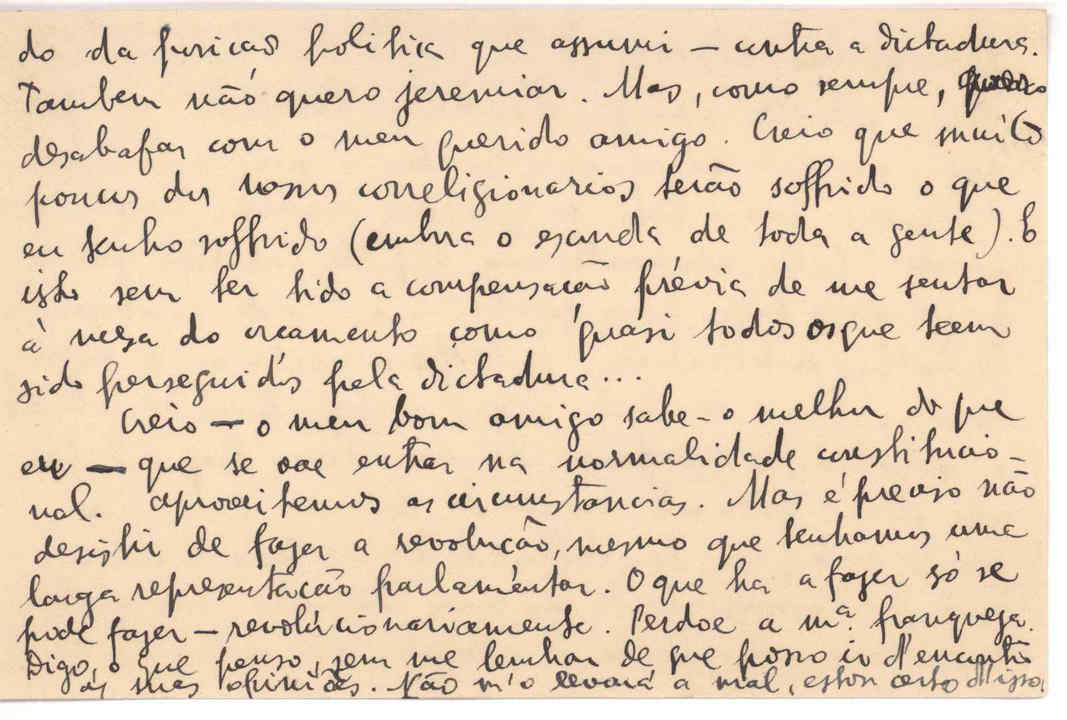 do da posição politica que assumi — contra a dictadura.
Tambem não quero jeremiar. Mas, como sempre, quero
desabafar com o meu querido amigo. Creio que muito
poucos dos nossos correligionarios terão soffrido o que
eu tenho soffrido (embora o esconda de toda a gente). E
isto sem ter tido a compensação prévia de me sentar
à mesa do orçamento como quasi todos os que teem
sido perseguidos pela dictadura...
Creio — o meu bom amigo sabe-o melhor do que
eu — que se vae entrar na normalidade constitucio-
nal. Aproveitemos as circunstancias. Mas é preciso não
desistir de fazer a revolução, mesmo que tenhamos uma
larga representação parlamentar. O que ha a fazer só se
pode fazer — revolucionariamente. Perdoe a mª franqueza.
Digo o que penso, sem me lembrar de que posso ir d'encontro
ás suas opiniões. Não m'o levará a mal, estou certo d'isso.